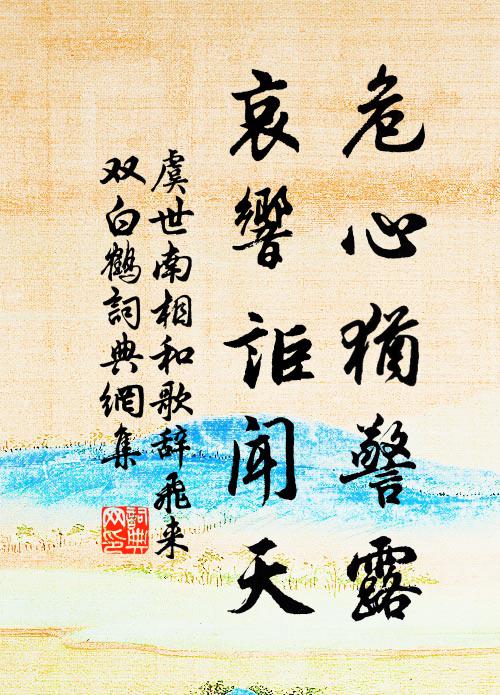 危心猶警露
哀響詎聞天
虞世南相和歌辞飛来
双白鶴詞典網集
詞典
网印